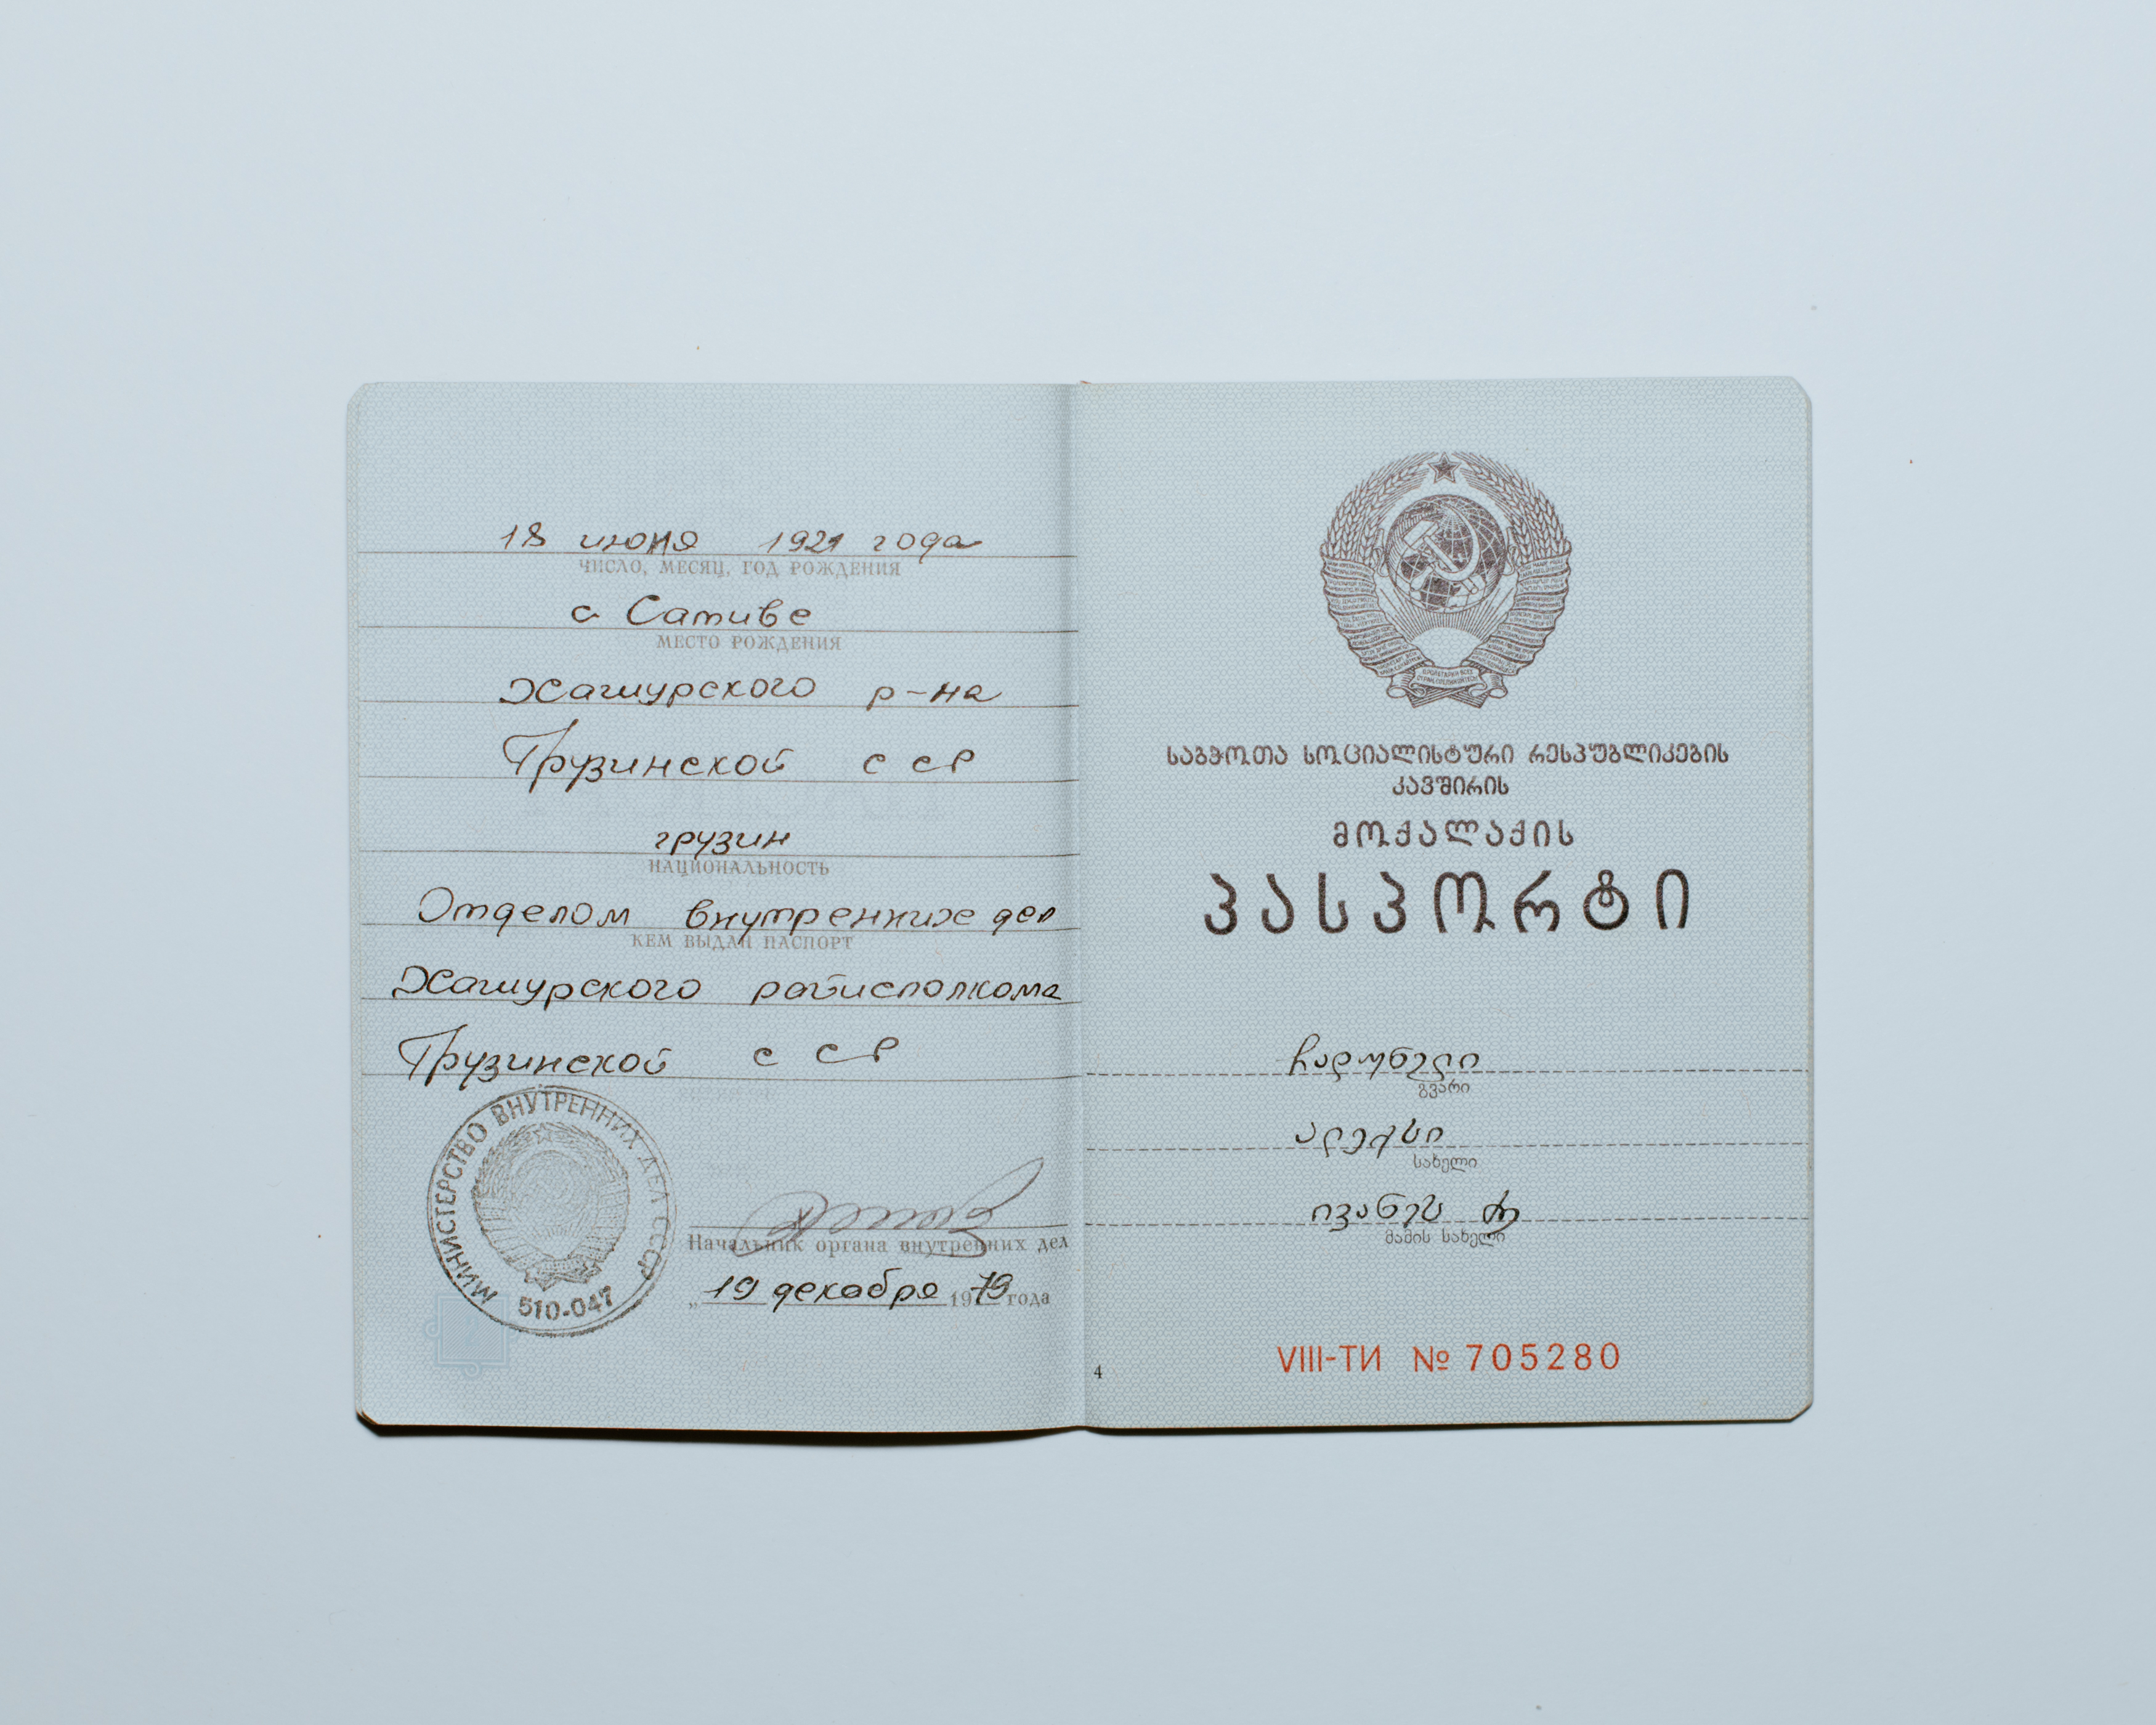 18 июня 1921 года
ЧИСЛО, МЕСЯЦ, ГОД РОЖДЕНИЯ
с Сативе
МЕСТО РОЖДЕНИЯ
Хашурского р-на
Грузинской ССР
грузин
НАЦИОНАЛЬНОСТЬ
Отделом внутренних дел
КЕМ ВЫДАН ПАСПОРТ
Хашурского райисполкома
Грузинской ССР
МИНИСТЕРСТВО ВНУТРЕННИХ ДЕЛ СССР
510-047
Начальник органа внутренних дел
„19 декабря 1979 года
საბჭოთა სოციალისტური რესპუბლიკების
კავშირის
მოქალაქის
პასპორტი
ჩადუნელი
გვარი
ალექსი
სახელი
ივანეს ძე
მამის სახელი
VIII-ТИ № 705280
4